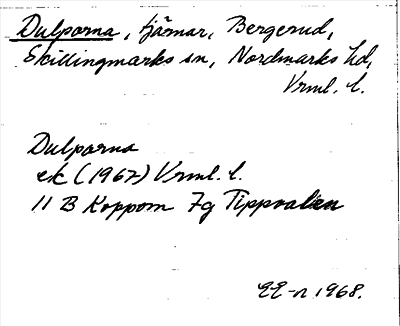 Dulparna, tjärnar, Bergerud,
Skillingmarks sn, Nordmarks hd,
Vrml. l.
Dulparna
ek (1967) Vrml. l.
11 B Koppom 7g Tippvalen
EE-n 1968.